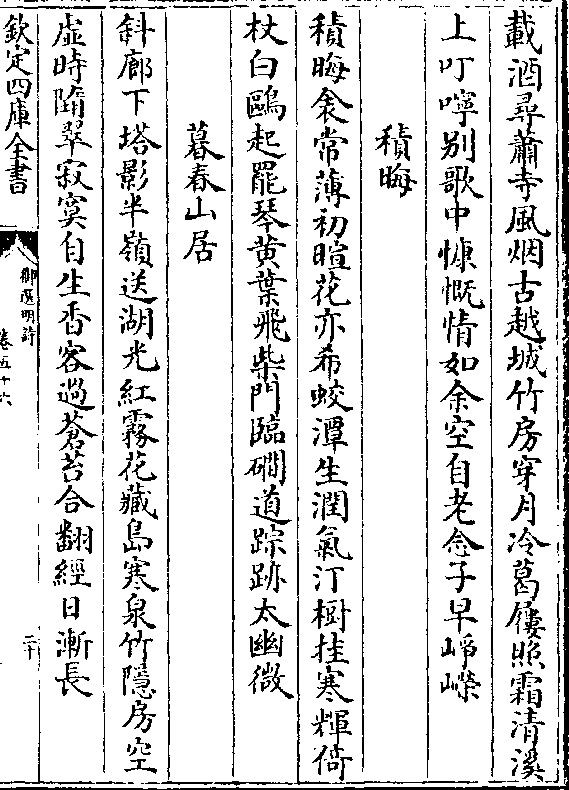 載酒尋蕭寺風烟古越城竹房穿月冷葛屨照霜清溪
上叮嚀别歌中慷慨情如余空自老念子早崢嶸
積晦
積晦衾常薄初暄花亦希蛟潭生潤氣汀樹挂寒輝倚
杖白鷗起罷琴黄葉飛柴門臨磵道踪跡太幽微
暮春山居
斜廊下塔影半嶺送湖光紅霧花藏島寒泉竹隱房空
虚時隋翠寂寞自生香客過蒼苔合翻經日漸長
欽定四庫全書
御選明詩
卷五十六
二十